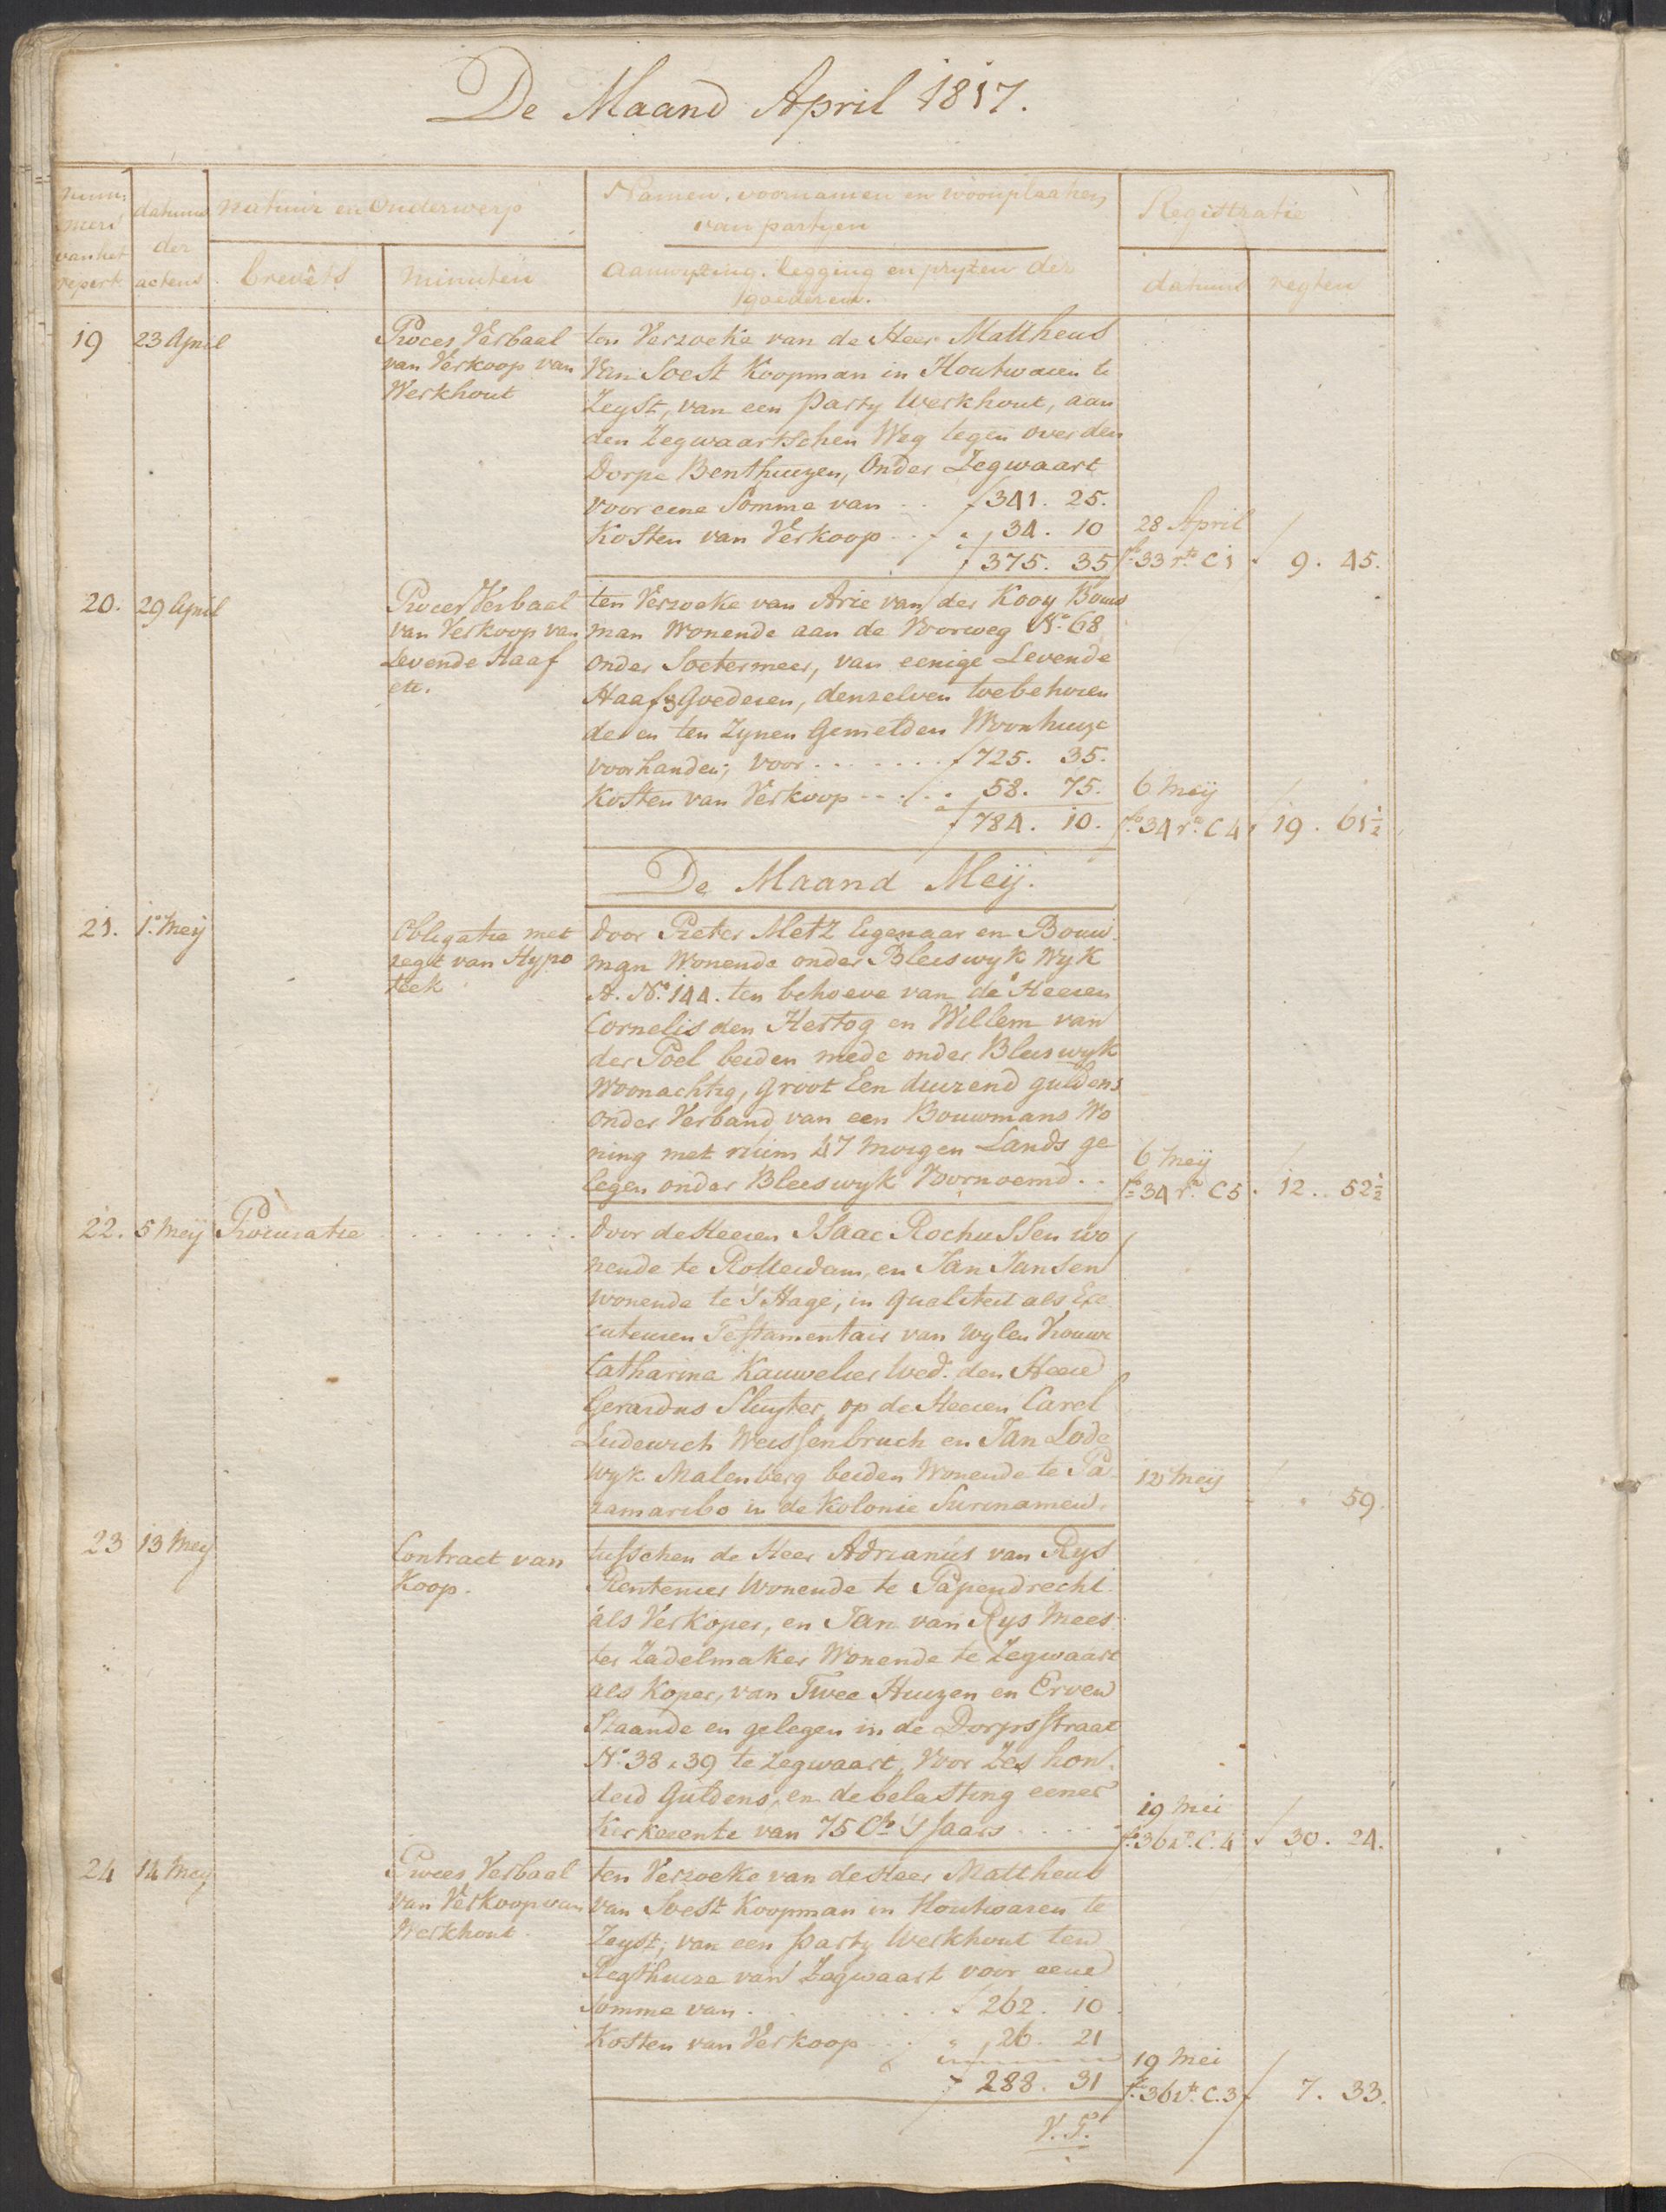 De Maand April 1817.
num:
mers
van het
repert.
datums
der
actens
natuur en Onderwerp
brevêts
minuten
Namen, voornamen en woonplaatzen
van partyen
aanwyzing. legging en pryzen der
goederen.
Registratie
datums
regten
19 23 April
Proces Verbaal
van Verkoop van
Werkhout
ten Verzoeke van de Heer Mattheus
Van Soest Koopman in Houtwaren te
Zeyst, van een party Werkhout, aan
den Zegwaartschen Weg tegen over den
Dorpe Benthuyzen, Onder Zegwaart
voor eene Somme van .. f 341. 25.
Kosten van Verkoop .. - „ 34. 10
f 375. 35
28 April
fo 33 ro C 1 f 9. 45.
20. 29 April
Proces Verbaal
van Verkoop van
Levende Haaf
etc.
ten Verzoeke van Arie van der Kooy Bouw
man Wonende aan de Voorweg No. 68
onder Soetermeer, van eenige Levende
Haaf & Goederen, denzelven toebehoren
de en ten Zynen Gemelden Woonhuyze
voorhanden; voor ....... f 725. 35.
Kosten van Verkoop -- . . „ 58. 75.
f 784. 10.
6 Meij
fo 34 ro C 4 f 19. 61½
De Maand Meij.
21. 1o Meij
Obligatie met
regt van Hypo
teek
door Pieter Metz Eigenaar en Bouw-
man Wonende onder Bleeswyk Wyk
A. No. 144. ten behoeve van de Heeren
Cornelis den Hertog en Willem van
der Poel beiden mede onder Bleeswyk
Woonachtig, groot Een duizend guldens
onder Verband van een Bouwmans Wo
ning met ruim 47 morgen Lands ge
legen onder Bleeswyk Voornoemd . .
6 Meij
fo 34 ro C 5. 12. 52½
22. 5 Meij Procuratie
door de Heeren Isaac Rochussen wo
nende te Rotterdam, en Jan Jansen
wonende te 's Hage, in qualiteit als Exe
cuteuren Testamentair van wylen Vrouwe
Catharina Kauwelier Wed. den Heere
Gerardus Sluyter, op de Heeren Carel
Ludewich Weissenbruch en Jan Lode
wyk Malenberg beiden Wonende te Pa
ramaribo in de Kolonie Surinamen.
12 Meij
„ 59.
23 13 Meij
Contract van
Koop.
tusschen de Heer Adrianus van Rys
Rentenier Wonende te Papendrecht
als Verkoper, en Jan van Rys Mees
ter Zadelmaker Wonende te Zegwaart
als Koper, van Twee Huyzen en Erven
Staande en gelegen in de Dorpsstraat
No. 38 & 39 te Zegwaart, Voor Zes hon
derd Guldens, en de belasting eener
Kerkerente van 75 Cts 's Jaars . . . .
19 Mei
fo 36 ro. C. 4 f 30. 24.
24 14 Meij
Proces Verbaal
van Verkoop van
Werkhout.
ten Verzoeke van de Heer Mattheus
van Soest Koopman in Houtwaren te
Zeyst; van een party Werkhout ten
Regthuize van Zegwaart voor eene
Somme van . . . . . . . f 262. 10.
Kosten van Verkoop . . „ 26. 21
f 288. 31
19 Mei
fo 36 vo. C. 3 f 7. 33.
V. T.